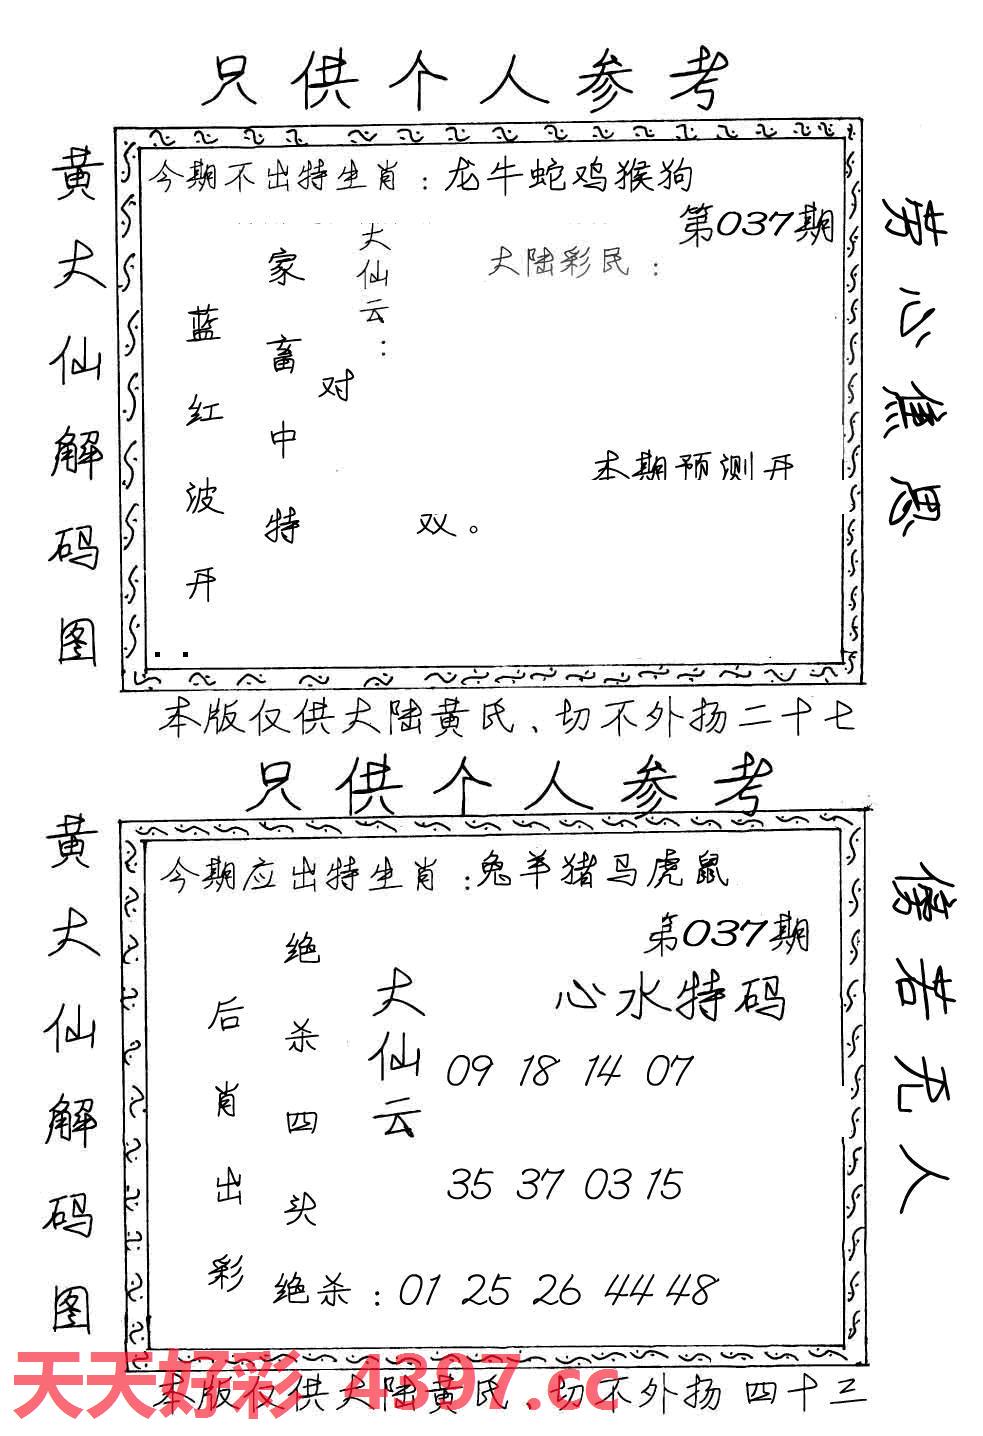 只供个人参考
黄大仙解码图
今期不出特生肖：龙牛蛇鸡猴狗
第037期
大陆彩民：
大仙云：
家畜中特
蓝红波开
对
双。
本期预测开
劳心焦思
本版仅供大陆黄氏、切不外扬二十七
只供个人参考
黄大仙解码图
今期应出特生肖：兔羊猪马虎鼠
第037期
心水特码
大仙云
绝杀四头
后肖出彩
09 18 14 07
35 37 03 15
绝杀：01 25 26 44 48
傍若无人
本版仅供大陆黄氏、切不外扬 四十三
天天好彩 4397.cc